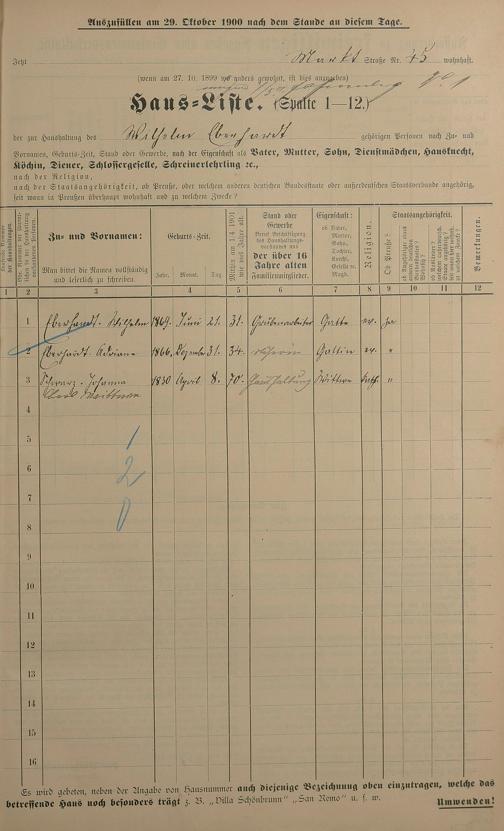 Auszufüllen am 29. Oktober 1900 nach dem Stande an diesem Tage.
Jetzt Markt Straße Nr. 45 wohnhaft.
(wenn am 27. 10. 1899 wo anders gewohnt, ist dies anzugeben)
Haus-Liste. (Spalte 1—12.)
der zur Haushaltung des Wilhelm Eberhardt gehörigen Personen nach Zu- und
Vornamen, Geburts-Zeit, Stand oder Gewerbe, nach der Eigenschaft als Vater, Mutter, Sohn, Dienstmädchen, Hausknecht,
Köchin, Diener, Schlossergeselle, Schreinerlehrling ec.,
nach der Religion,
nach der Staatsangehörigkeit, ob Preuße, oder welchem anderen deutschen Bundesstaate oder außerdeutschen Staatsverbande angehörig,
seit wann in Preußen überhaupt wohnhaft und zu welchem Zwecke?
Zu- und Vornamen:
Man bittet die Namen vollständig und leserlich zu schreiben.
Geburts-Zeit.
Jahr. Monat. Tag.
Mithin am 1/4 1901 wie viel Jahre alt.
Stand oder Gewerbe
der über 16 Jahre alten Familienmitglieder.
Eigenschaft:
ob Vater, Mutter, Sohn, Tochter, Knecht, Geselle oder Magd.
Religion.
Staatsangehörigkeit.
Ob Preuße?
Bemerkungen.
1 2 3 4 5 6 7 8 9 10 11 12
1 Eberhardt Wilhelm 1869. Juni 21. 31. Gatte ev. ja
2 Eberhardt Adriane 1866. Dezember 31. 34. Gattin ev. "
3 Schwarz Johanna 1830 April 8. 70. Haushaltung Wittwe kath. "
4
5 1
6 2
7
8 0
9
10
11
12
13
14
15
16
Es wird gebeten, neben der Angabe von Hausnummer auch diejenige Bezeichnung oben einzutragen, welche das
betreffende Haus noch besonders trägt z. B. „Villa Schönbrunn" „San Remo" u. s. w. Umwenden!